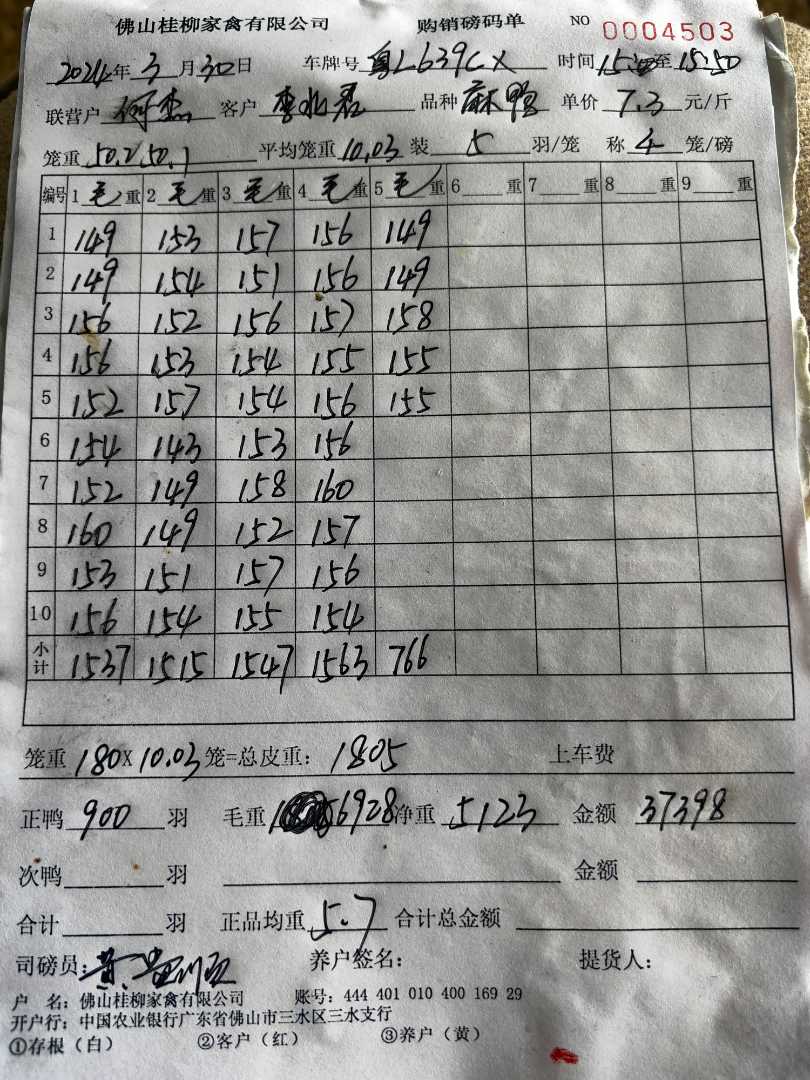 佛山桂柳家禽有限公司 购销磅码单 NO 0004503
2024年3月30日 车牌号 粤L639CX 时间 至15:50
联营户 何杰 客户 李 君 品种 麻鸭 单价 7.3 元/斤
笼重 50.2 50.1 平均笼重 10.03 装 5 羽/笼 称 4 笼/磅
编号 1 毛 重 2 毛 重 3 毛 重 4 毛 重 5 毛 重 6 重 7 重 8 重 9 重
1 149 153 157 156 149
2 149 154 151 156 149
3 156 152 156 157 158
4 156 153 154 155 155
5 152 157 154 156 155
6 154 143 153 156
7 152 149 158 160
8 160 149 152 157
9 153 151 157 156
10 156 154 155 154
小计 1537 1515 1547 1563 766
笼重 180×10.03 笼=总皮重: 1805 上车费
正鸭 900 羽 毛重 6928 净重 5123 金额 37398
次鸭 羽 金额
合计 羽 正品均重 5.7 合计总金额
司磅员: 黄 养户签名: 提货人:
户 名: 佛山桂柳家禽有限公司 账号: 444 401 010 400 169 29
开户行: 中国农业银行广东省佛山市三水区三水支行
①存根(白) ②客户(红) ③养户(黄)